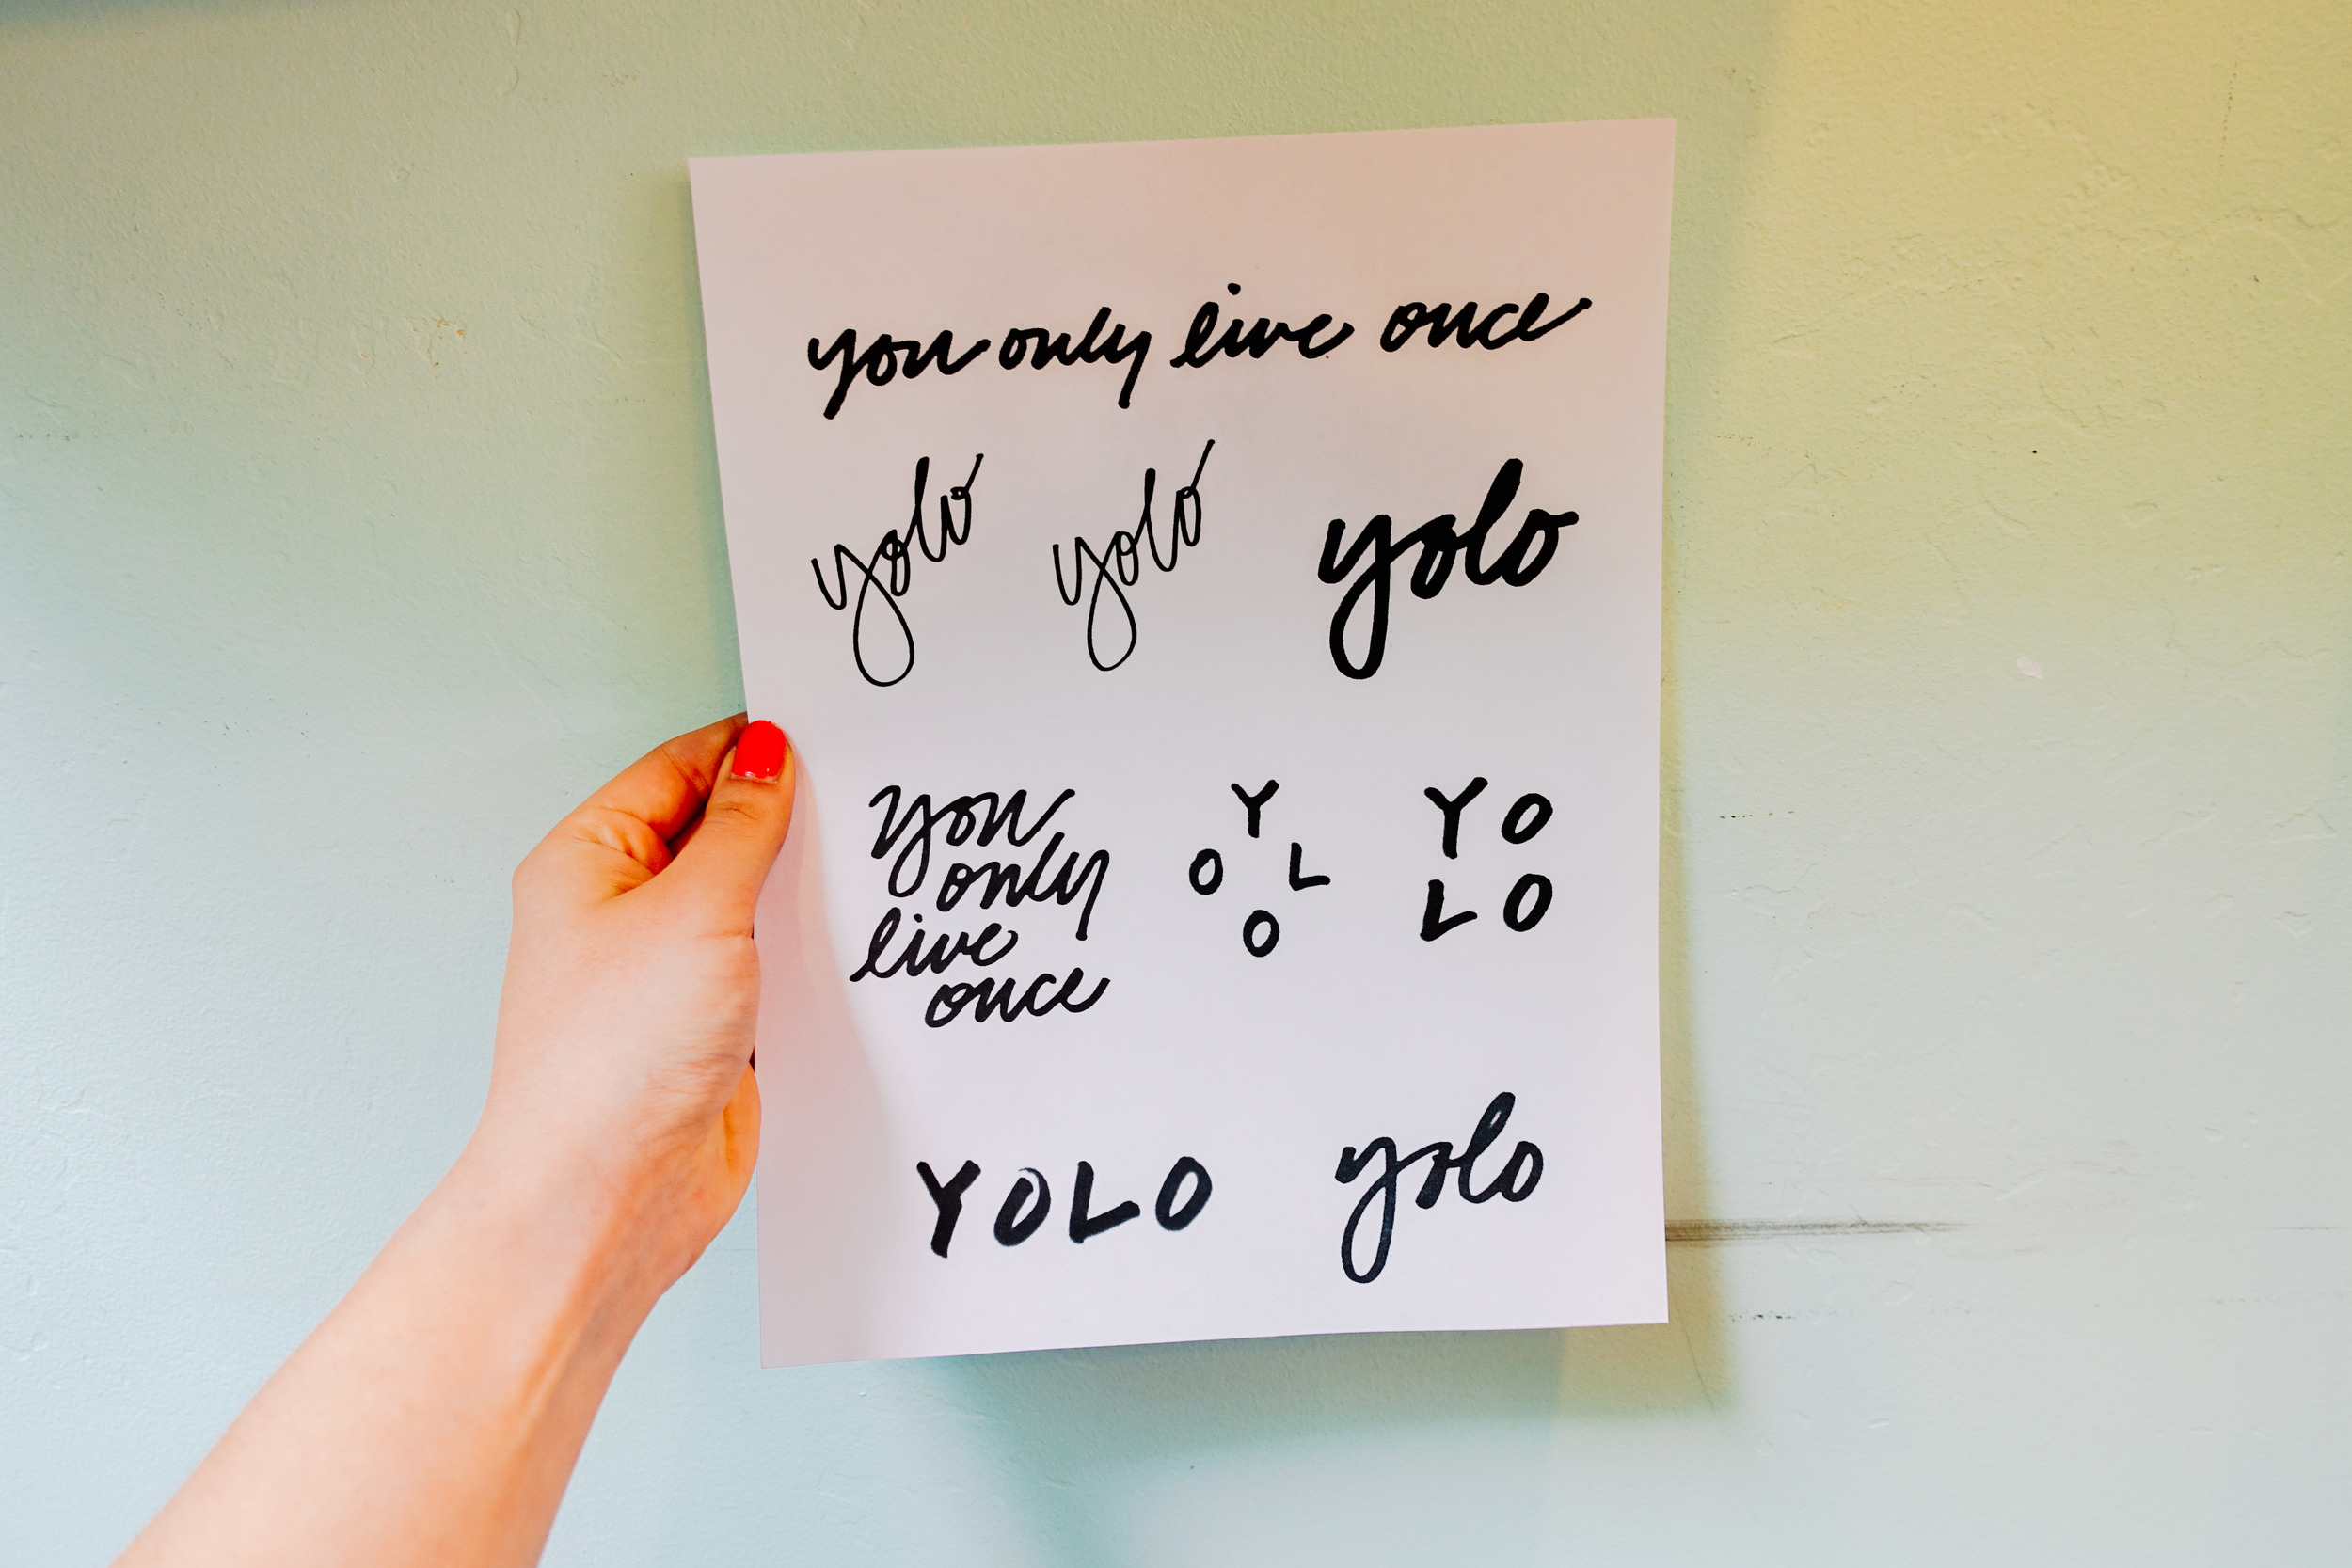 you only live once
yolo yolo yolo
you
only
live
once
Y
O L
O
YO
LO
YOLO yolo